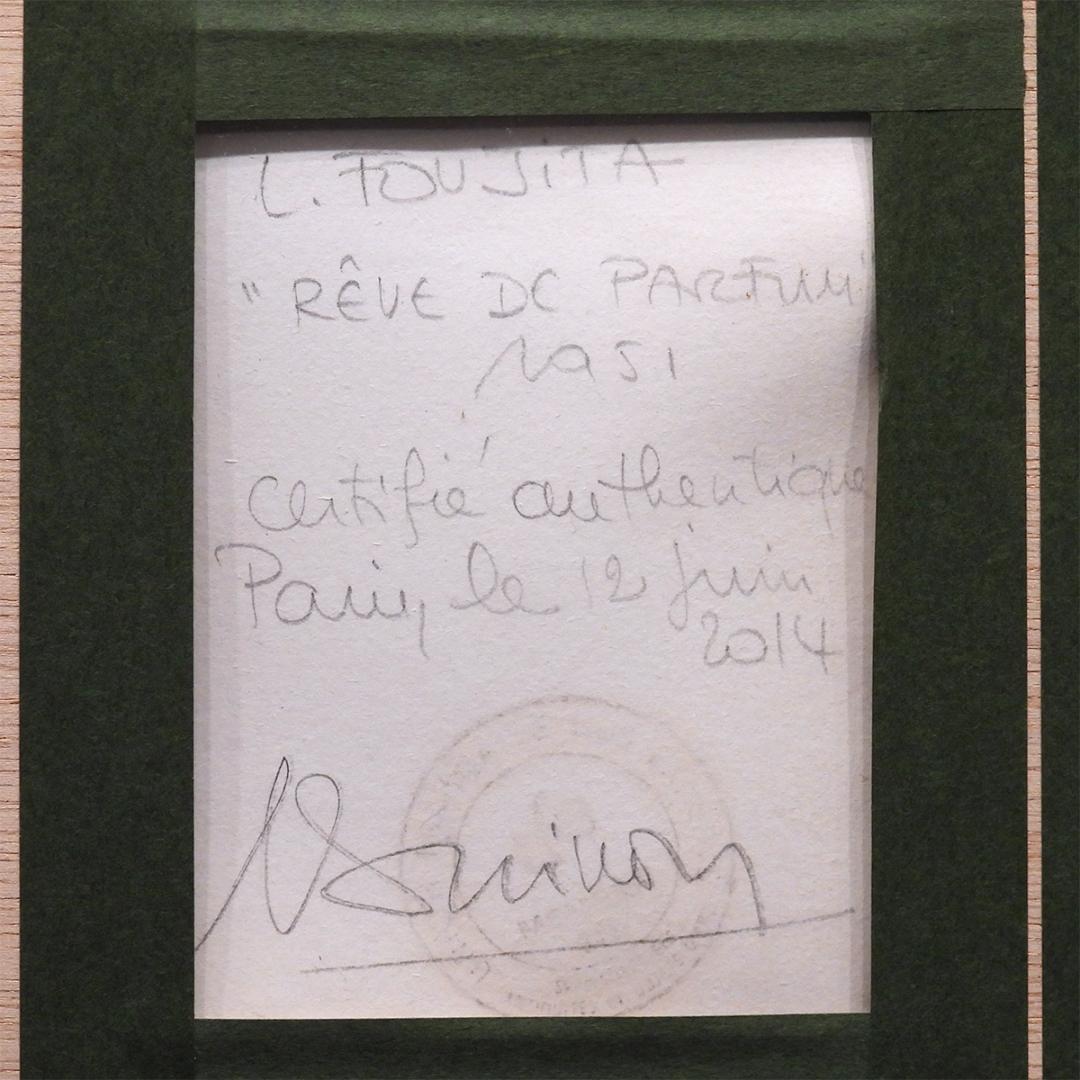 L. FOUJITA
"RÊVE DE PARFUM"
1951
Certifié authentique
Paris, le 12 juin
2014